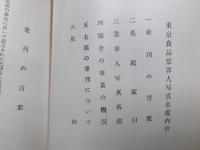 東京食品業界人写真名鑑内容
一 発刊の言葉
二 名鑑索引
三 業界人写真名鑑
四 協会の概況
五 名鑑の発刊について
六
発刊の言葉